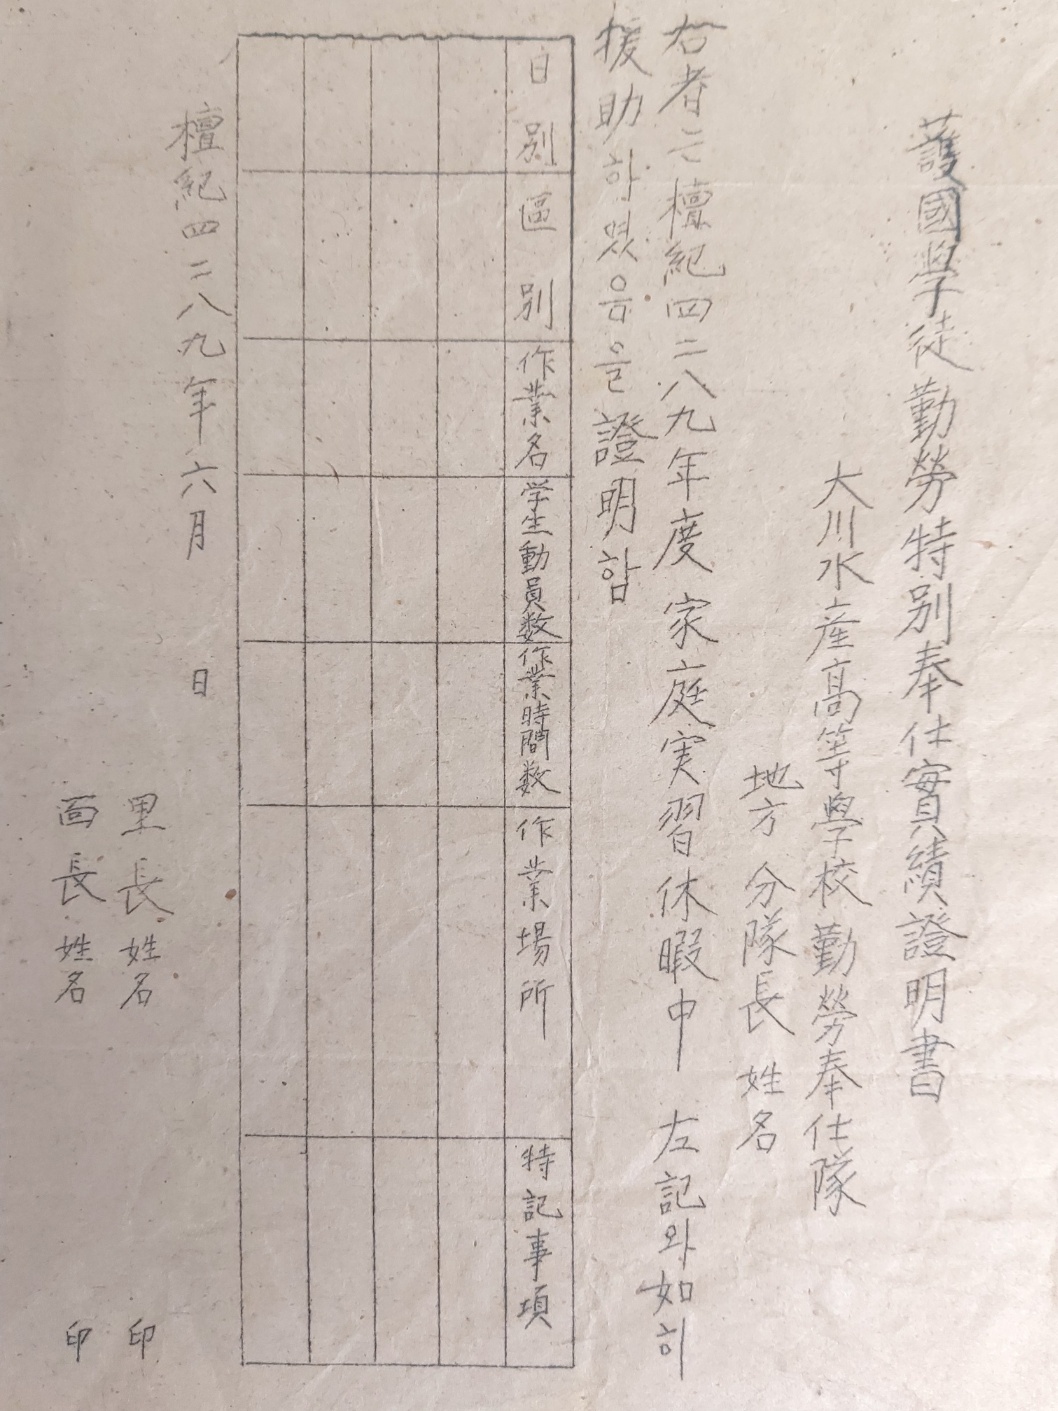 護國學徒勤勞特別奉仕實績證明書
大川水産高等學校勤勞奉仕隊
地方分隊長 姓名
右者는檀紀四二八九年度家庭実習休暇中 左記와如히
援助하였음을證明함
日別
區別
作業名
学生動員数
作業時間数
作業場所
特記事項
檀紀四二八九年六月 日
里長 姓名 印
面長 姓名 印